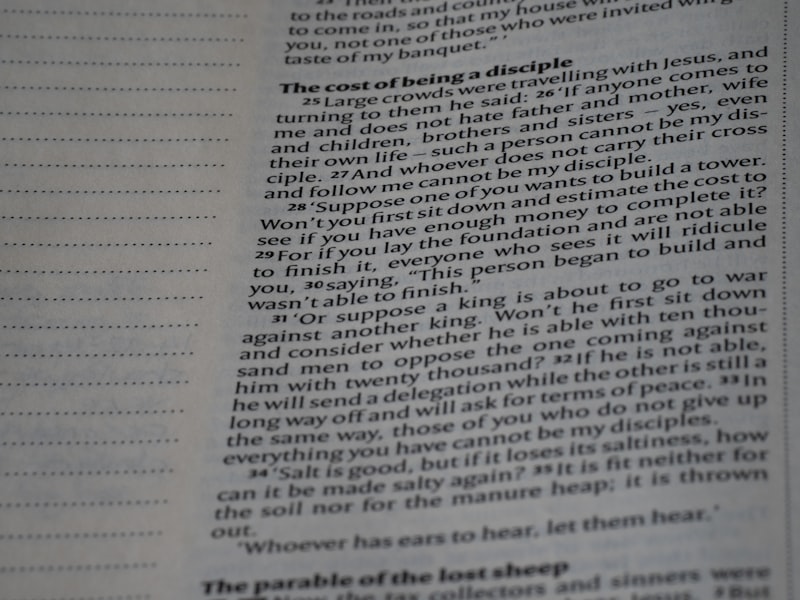 to the roads and
to come in, so that my house
you, not one of those who were invited
taste of my banquet.” ’
The cost of being a disciple
25 Large crowds were travelling with Jesus, and
turning to them he said: 26 ‘If anyone comes to
me and does not hate father and mother, wife
and children, brothers and sisters – yes, even
their own life – such a person cannot be my dis-
ciple. 27 And whoever does not carry their cross
and follow me cannot be my disciple.
28 ‘Suppose one of you wants to build a tower.
Won’t you first sit down and estimate the cost to
see if you have enough money to complete it?
29 For if you lay the foundation and are not able
to finish it, everyone who sees it will ridicule
you, 30 saying, “This person began to build and
wasn’t able to finish.”
31 ‘Or suppose a king is about to go to war
against another king. Won’t he first sit down
and consider whether he is able with ten thou-
sand men to oppose the one coming against
him with twenty thousand? 32 If he is not able,
he will send a delegation while the other is still a
long way off and will ask for terms of peace. 33 In
the same way, those of you who do not give up
everything you have cannot be my disciples.
34 ‘Salt is good, but if it loses its saltiness, how
can it be made salty again? 35 It is fit neither for
the soil nor for the manure heap; it is thrown
out.
‘Whoever has ears to hear, let them hear.’
The parable of the lost sheep
Now the tax collectors and sinners were